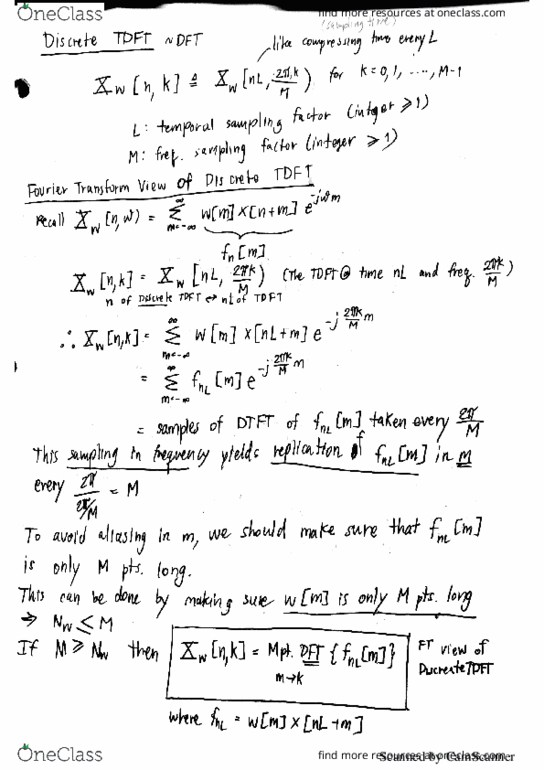 OneClass
find more resources at oneclass.com
(sampling time)
Discrete TDFT ~DFT
like compressing time every L
X_w[n,k] ≜ X_w[nL, 2πk/M) for k=0,1, ...., M-1
L: temporal sampling factor (integer ≥ 1)
M: freq. sampling factor (integer ≥ 1)
Fourier Transform View of Discrete TDFT
recall X_w[n,ω) = Σ_{m=-∞}^{∞} w[m] x[n+m] e^{-jωm}
f_n[m]
X_w[n,k] = X_w[nL, 2πk/M) (The TDFT @ time nL and freq. 2πk/M)
n of Discrete TDFT ↔ nL of TDFT
∴ X_w[n,k] = Σ_{m=-∞}^{∞} w[m] x[nL+m] e^{-j 2πk/M m}
= Σ_{m=-∞}^{∞} f_{nL}[m] e^{-j 2πk/M m}
= samples of DTFT of f_{nL}[m] taken every 2π/M
This sampling in frequency yields replication of f_{nL}[m] in m
every 2π/(2π/M) = M
To avoid aliasing in m, we should make sure that f_{nL}[m]
is only M pts. long.
This can be done by making sure w[m] is only M pts. long
⇒ N_w ≤ M
If M ≥ N_w then X_w[n,k] = M pt. DFT {f_{nL}[m]}
m→k
FT view of
Discrete TDFT
where f_{nL} = w[m] x[nL+m]
OneClass
find more resources at oneclass.com
Scanned by CamScanner